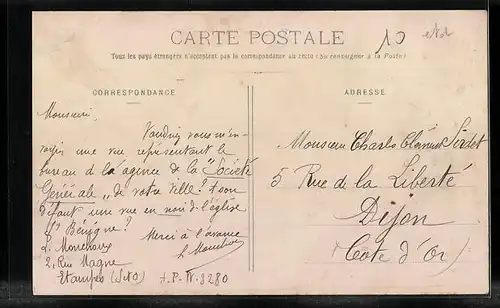 CARTE POSTALE
10
Tous les pays étrangers n'acceptent pas la correspondance au recto (Se renseigner à la Poste)
CORRESPONDANCE
Monsieur,
Voudriez vous m'en-
voyer une vue représentant le
bureau de l'agence de la "Société
Générale" de votre ville? à son
défaut une vue en noir de l'église
St Bénigne?
Merci à l'avance
2, Rue Magne
Etampes (S et O)
A.P. N. 3280
ADRESSE
Monsieur Charles Clément
5 Rue de la Liberté
Dijon
(Côte d'Or)